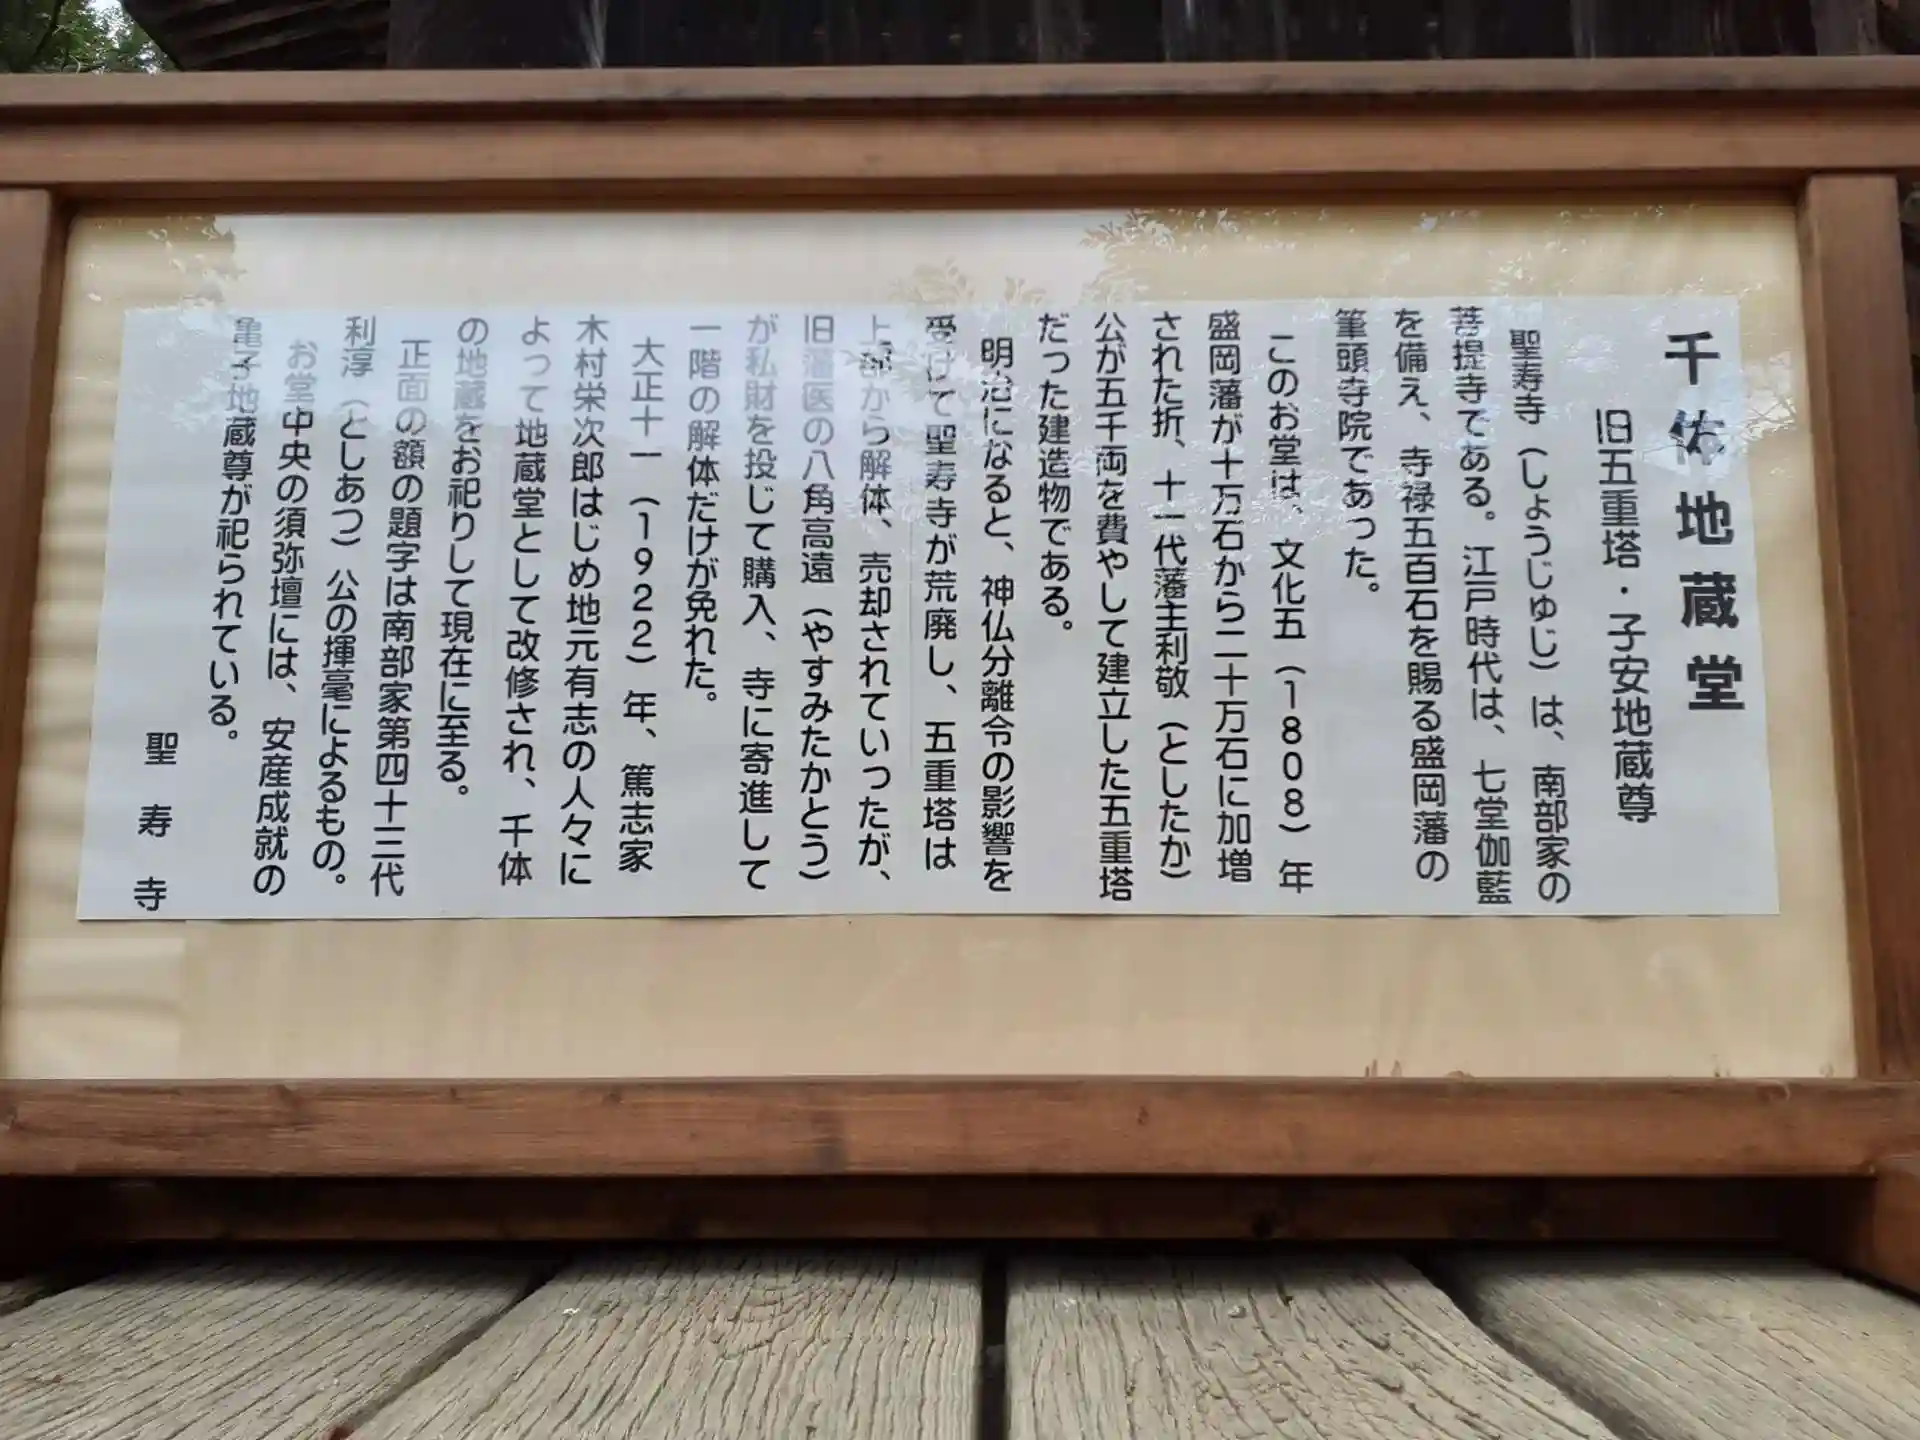 千体地蔵堂
旧五重塔・子安地蔵尊
聖寿寺（しょうじゅじ）は、南部家の
菩提寺である。江戸時代は、七堂伽藍
を備え、寺禄五百石を賜る盛岡藩の
筆頭寺院であった。
このお堂は、文化五（1808）年
盛岡藩が十万石から二十万石に加増
された折、十一代藩主利敬（としたか）
公が五千両を費やして建立した五重塔
だった建造物である。
明治になると、神仏分離令の影響を
受けて聖寿寺が荒廃し、五重塔は
上部から解体、売却されていったが、
旧藩医の八角高遠（やすみたかとう）
が私財を投じて購入、寺に寄進して
一階の解体だけが免れた。
大正十一（1922）年、篤志家
木村栄次郎はじめ地元有志の人々に
よって地蔵堂として改修され、千体
の地蔵をお祀りして現在に至る。
正面の額の題字は南部家第四十三代
利淳（としあつ）公の揮毫によるもの。
お堂中央の須弥壇には、安産成就の
亀子地蔵尊が祀られている。
聖寿寺